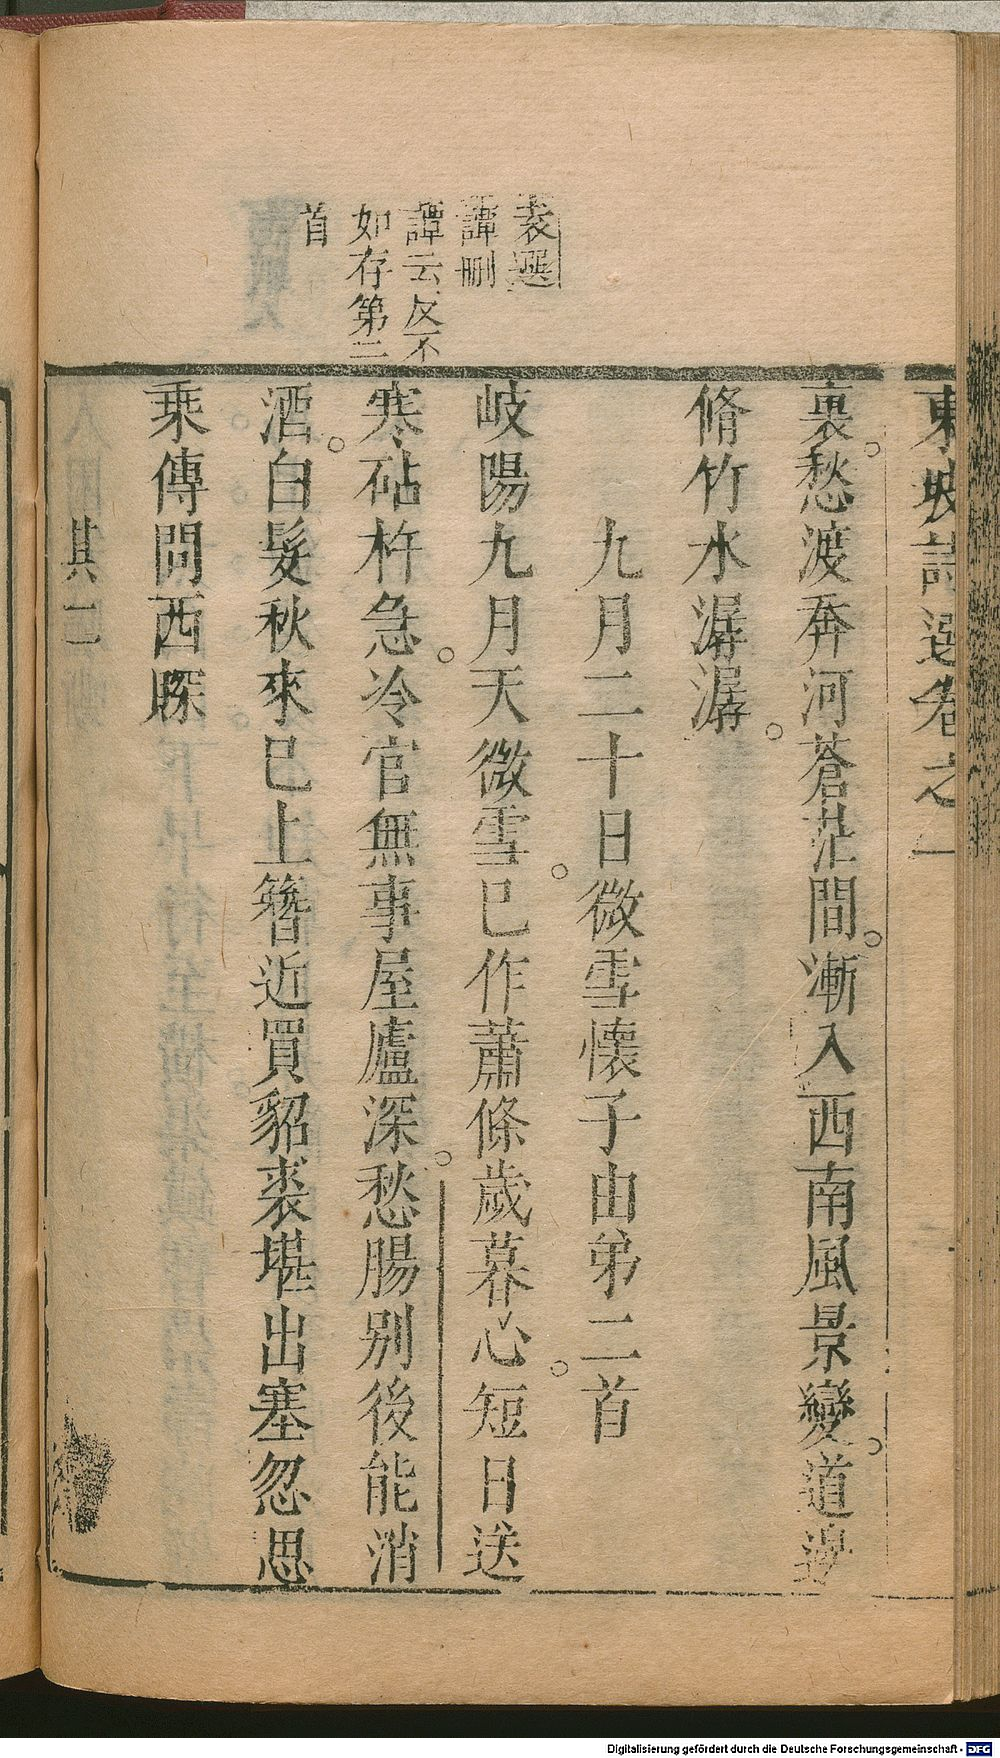 東坡詩選卷之一
裏愁渡奔河蒼茫間漸入西南風景變道邊
脩竹水潺潺
九月二十日微雪懷子由弟二首
岐陽九月天微雪已作蕭條歲暮心短日送
寒砧杵急冷官無事屋廬深愁腸別後能消
酒白髮秋來已上簪近買貂裘堪出塞忽思
乘傳問西琛
其二
袁選
譚刪
譚云反不
如存第二
首
Digitalisierung gefördert durch die Deutsche Forschungsgemeinschaft - DFG